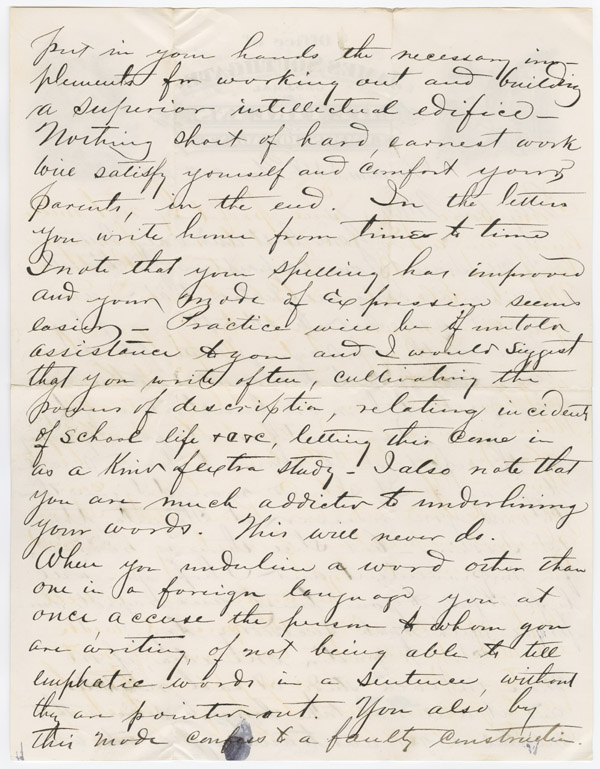 put in your hands the necessary im-
plements for working out and building
a superior intellectual edifice -
Nothing short of hard earnest work
will satisfy yourself and comfort your
parents, in the end. In the letters
you write home from time to time
I note that your spelling has improved
and your mode of Expression seems
easier - Practice will be of untold
assistance to you and I would suggest
that you write often, cultivating the
powers of description, relating incidents
of school life &c &c, letting this come in
as a kind of extra study - I also note that
you are much addicted to underlining
your words. This will never do.
When you underline a word other than
one in a foreign language you at
once, accuse the person to whom you
are writing of not being able to tell
emphatic words in a sentence, without
they are pointed out. You also by
this mode confess to a faulty construction.